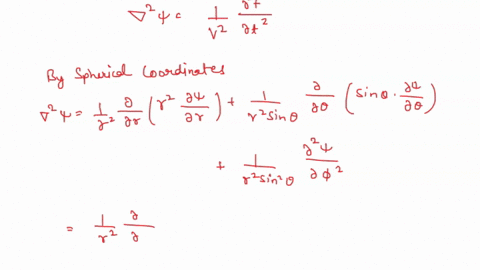 ∇²ψ = 1/v² ∂ψ/∂t²
By Spherical Coordinates
∇²ψ = 1/r² ∂/∂r (r² ∂ψ/∂r) + 1/(r² sinθ) ∂/∂θ (sinθ · ∂ψ/∂θ)
+ 1/(r² sin²θ) ∂²ψ/∂φ²
= 1/r² ∂/∂